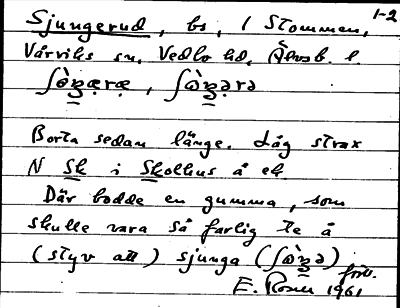 1-2
Sjungerud, bs, / Stommen,
Värviks sn, Vedbo hd, Älvsb. l.
ʃὼŋæræ, ʃὼŋərə
Borta sedan länge. Låg strax
N Sk i Skollhus å ek.
Där bodde en gumma, som
skulle vara så farlig te å
(styv att) sjunga (ʃὼŋə)
förr.
E. Rosen 1961